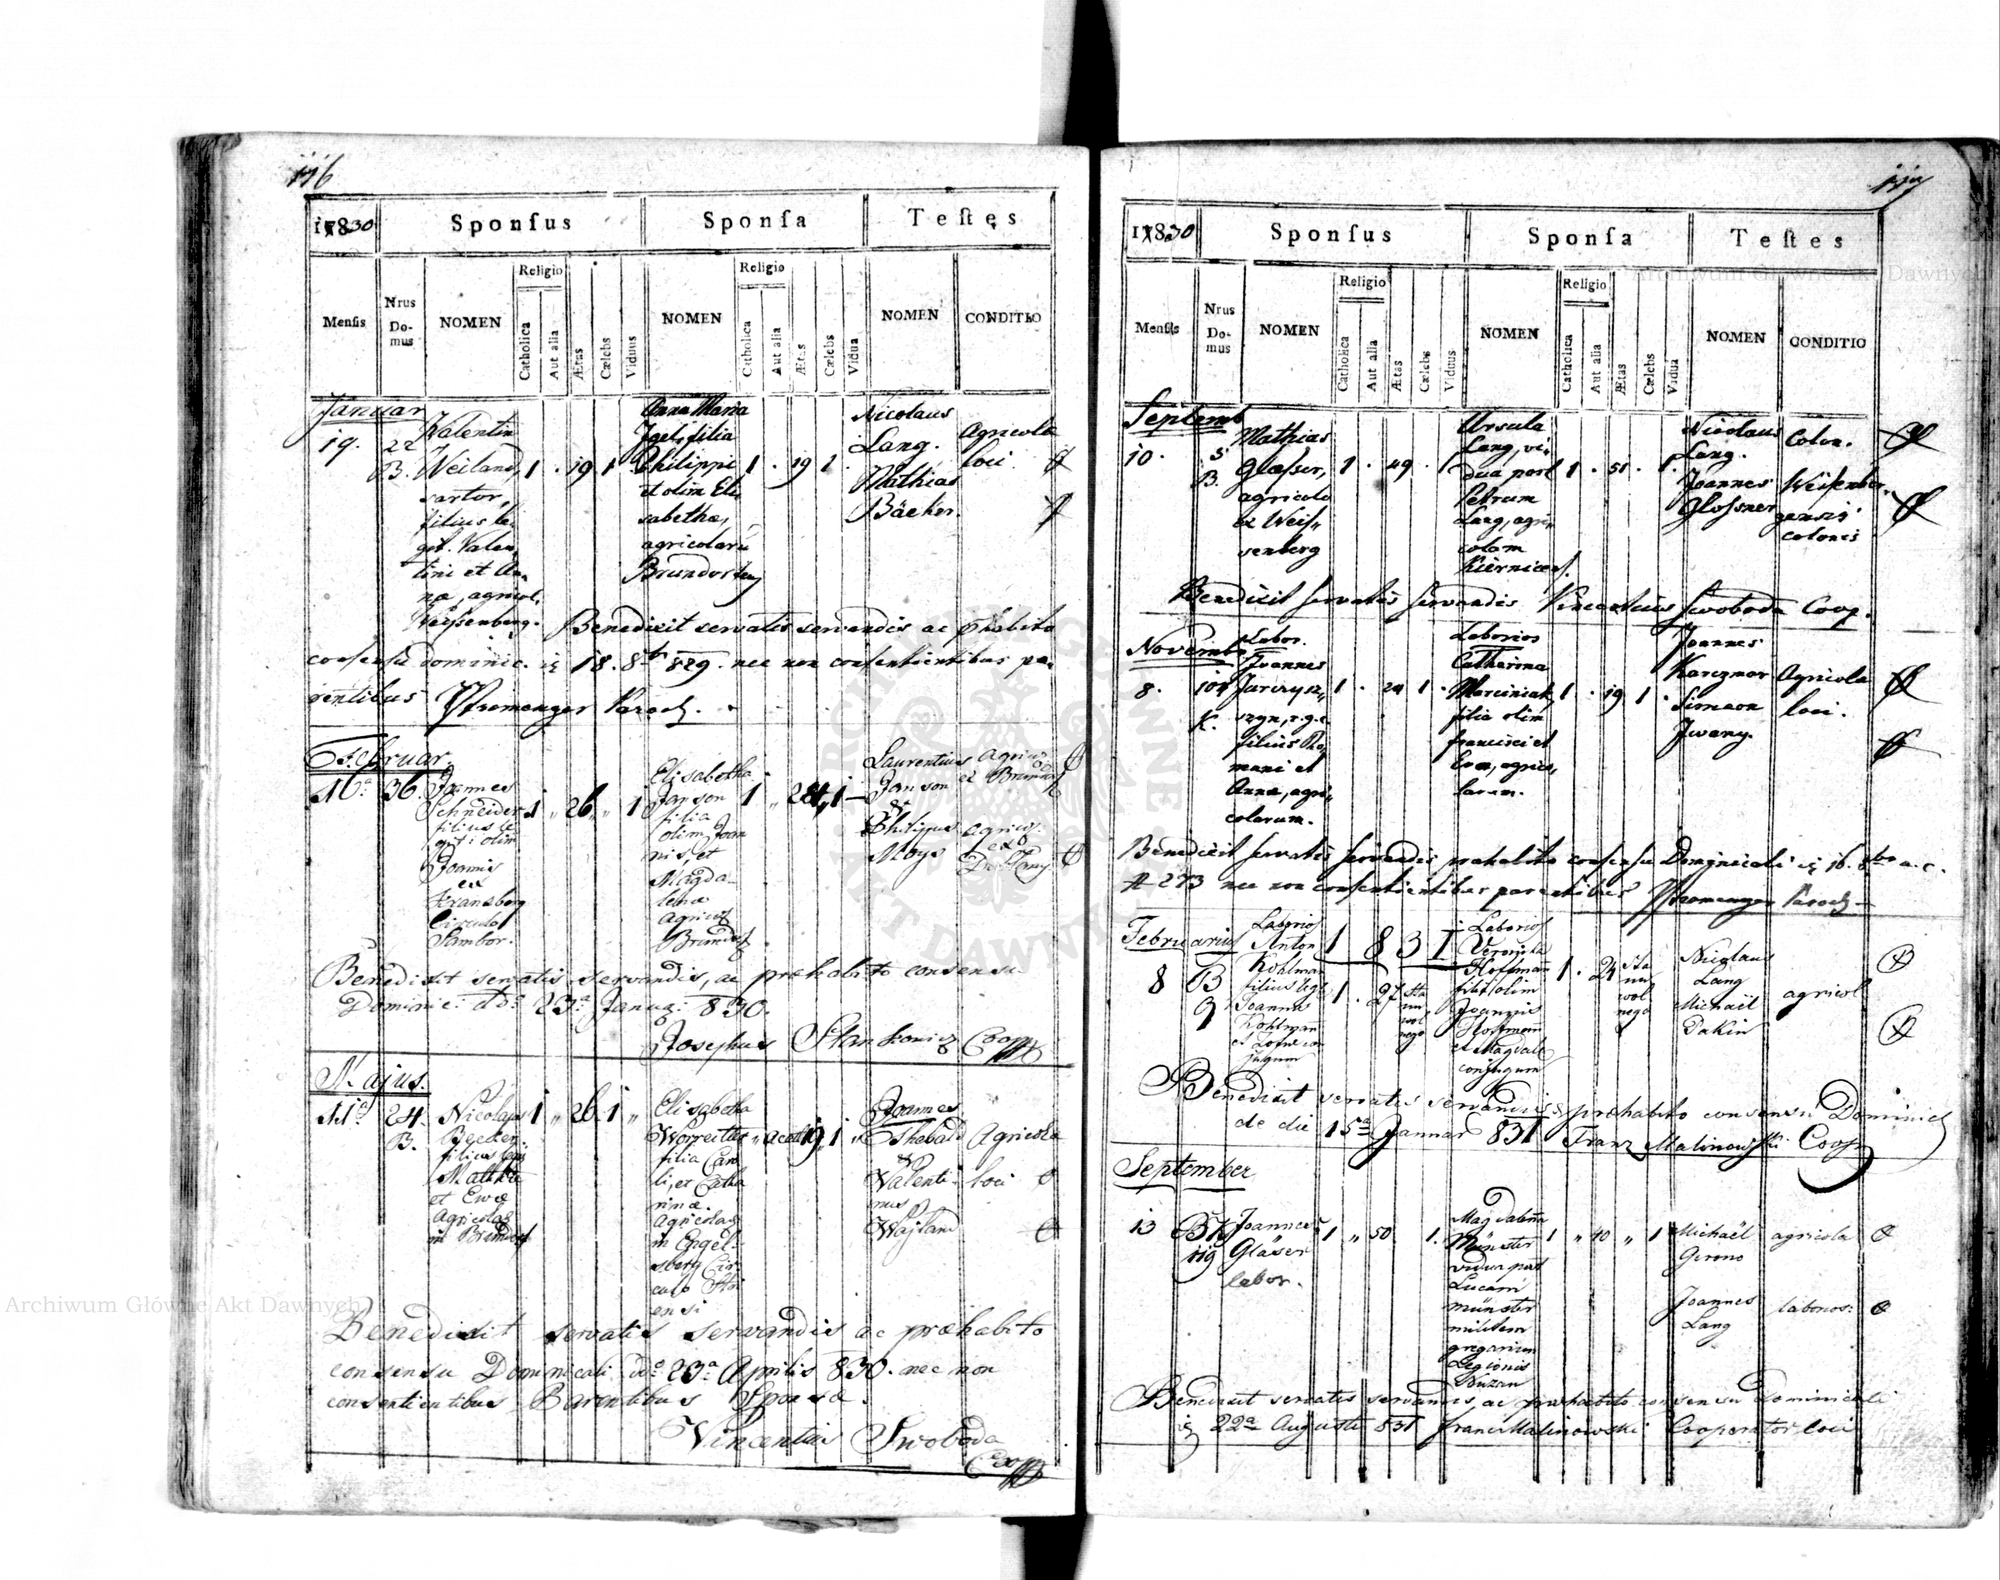 116
1830
Sponſus
Sponſa
Teſtes
Menſis
Nrus Domus
NOMEN
Religio
Catholica
Aut alia
Ætas
Cœlebs
Viduus
NOMEN
Religio
Catholica
Aut alia
Ætas
Cœlebs
Vidua
NOMEN
CONDITIO
Januar
19.
22
B.
Valentin
Weiland,
sartor,
filius le
git. Valen
tini et An
næ, agricol.
Weissenberg.
1 . 19 1
Anna Maria
Igel, filia
Philippi
et olim Eli
sabethæ,
agricolaru
Brundorf
1 . 19 1
Nicolaus
Lang.
Mathias
Bäcker.
Agricola
loci
Benedixit servatis servandis ac præhabito
consensu dominic. 18. 8br 829. nec non consentientibus pa
rentibus Paroch.
Februar.
16a
36.
Joannes
Schneider
filius le
git: olim
Joannis
ex
Kranzberg
Circulo
Sambor.
1 " 26 " 1
Elisabetha
Janson
filia
olim Joan
nis, et
Magda
lenæ
agricol
Brundorf
1 " 1
Laurentius
Janson
&
Philippus
Moys
Agric
ex Brundorf
agricol.
ex
Benedixit servatis servandis, ac præhabito consensu
Dominic: ddo 23a Janua: 830.
Josephus Stankowicz Coop
Majus.
11a
24.
B.
Nicolaus
Becker
filius legit
Mathiæ
et Evæ
Agricolar
in Brundorf
1 " 26 1 "
Elisabetha
filia Caro
li, et Catha
rinæ
Agricolar
in Engels
berg Cir
culo Stri
ensi
19 1 "
Joannes
Thebald
&
Valenti
nus
Wajland
Agricola
loci
Benedixit servatis servandis ac præhabito
consensu Dominicali ddo 23a Aprilis 830. nec non
consentientibus Parentibus Sponsæ.
Vincentius Swoboda
Coop
117
1830
Sponſus
Sponſa
Teſtes
Menſis
Nrus Domus
NOMEN
Religio
Catholica
Aut alia
Ætas
Cœlebs
Viduus
NOMEN
Religio
Catholica
Aut alia
Ætas
Cœlebs
Vidua
NOMEN
CONDITIO
Septemb
10.
5
B.
Mathias
Glæsser,
agricola
ex Weis
senberg
1 . 49 . 1
Ursula
Lang, vi
dua post
Petrum
Lang, agri
colam
Kiernicen.
1 . 51 . 1
Nicolaus
Lang.
Joannes
Glossner
Colon.
Weissenber
gensis
colonis
Benedixit servatis servandis Vincentius Swoboda Coop.
Novembr
8.
104
K.
Labor.
Joannes
filius Ro
mani et
Anna, agri
colarum.
1 . 24 1 .
Laborios
Catharina
Marciniak,
filia olim
Francisci et
Eva, agrico
larum.
1 . 19 1 .
Joannes
Karczmar
Simeon
Jwany.
Agricola
loci.
Benedixit servatis servandis præhabito consensu Dominicali 16. 8bris a. c.
N 273 nec non consentientibus parentibus Paroch
Februarius 1831
8
B
9
Laborios
Anton
Kohlman
filius legit
Joannes
Kohlman
et
jugum
1 . 27 sta
nu
wol
nego
Laborios
Veronika
Hoffman
filia olim
Joannis
Hoffman
et Magdale
conjugum
1 . 24 sta
nu
wol
nego
Nicolaus
Lang
Michaël
Pakin
agricol
Benedixit servatis servandis, præhabito consensu Dominic
de die 15a Januar 831 Franz Malinowski Coop
September
13
119
Joannes
Gläser
labor.
1 " 50 1.
Magdalena
Münster
vidua post
Lucam
Münster
militem
gregarium
Legionis
1 " 40 " 1
Michaël
Gerono
Joannes
Lang
agricola
laborios.
Benedixit servatis servandis, ac præhabito consensu Dominicali
22a Augusti 831 Franc Malinowski Cooperator loci
Archiwum Główne Akt Dawnych
Archiwum Główne Akt Dawnych
ARCHIWUM GŁÓWNE AKT DAWNYCH